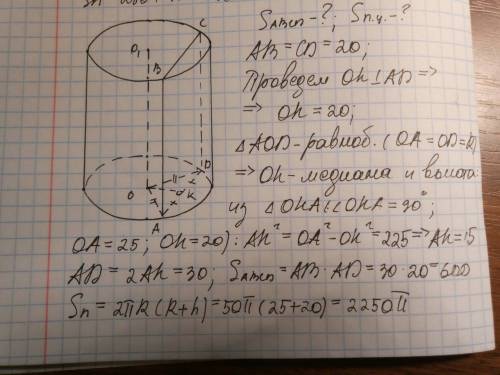 S_ABCD - ?; S_п.ц. - ?
AB = CD = 20;
Проведем OK ⊥ AD =>
=> OK = 20;
△AOD - равноб. (OA = OD = R)
=> OK - медиана и высота
из △OKA (∠OKA = 90°;
OA = 25; OK = 20): AK² = OA² - OK² = 225 => AK = 15
AD = 2AK = 30; S_ABCD = AB · AD = 30 · 20 = 600
Sп = 2πR (R + h) = 50π (25 + 20) = 2250π
O₁
C
B
O
D
K
A